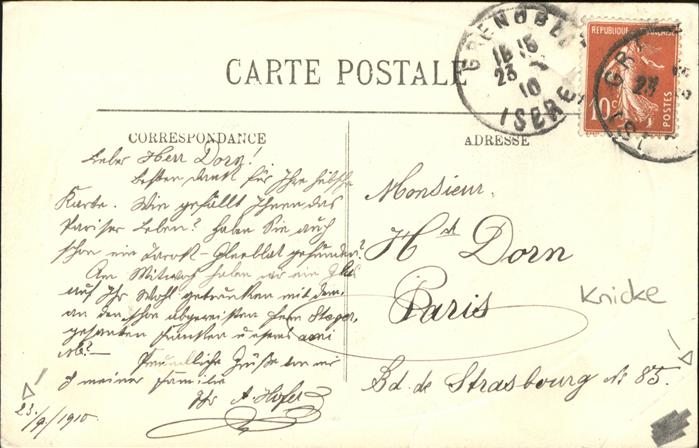 CARTE POSTALE
GRENOBLE
15 15
23
10
ISERE
REPUBLIQUE FRANÇAISE
10c
POSTES
CORRESPONDANCE
ADRESSE
Lieber Herr Dorn!
Besten Dank für Ihre hübsche
Karte. Wie gefällt Ihnen das
Pariser Leben? Haben Sie auch
schon ein Tarock- gefunden?
Am Mittwoch haben wir ein Glas
auf Ihr Wohl getrunken mit dem
an den abgereisten Herrn
unseres ami
Freundliche Grüße von mir
& meiner Familie
Ihr A. Hofer
23./9/1910
Monsieur
Hd Dorn
Paris
Bd. de Strasbourg No 85.
Knicke